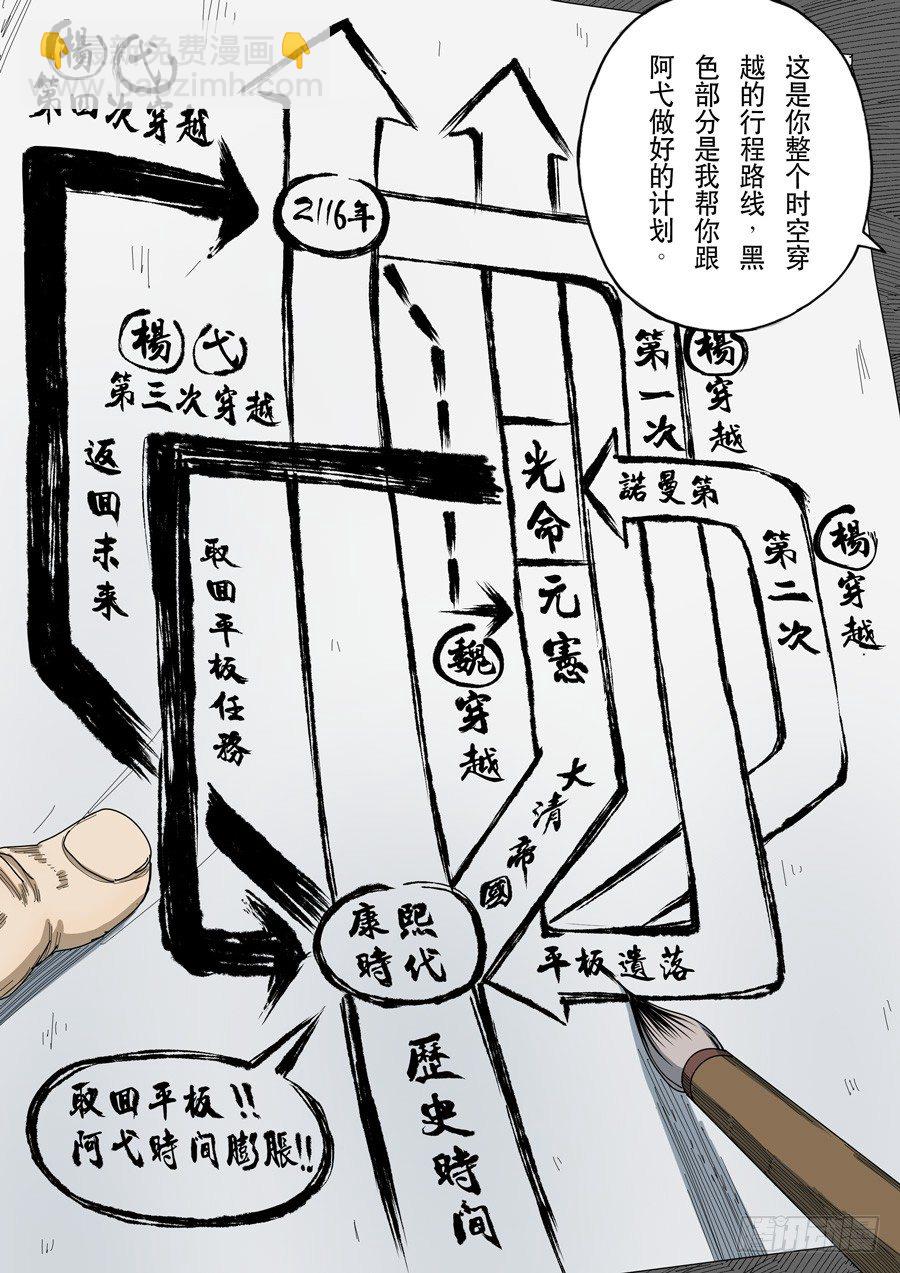 这是你整个时空穿
越的行程路线，黑
色部分是我帮你跟
阿弋做好的计划。
最新免费漫画
楊 弋
第四次穿越
2116年
楊 弋
第三次穿越
返回未来
取回平板任務
第一次
楊穿越
諾曼第
第二次
楊穿越
光命
元憲
魏穿越
大清帝國
康熙
時代
平板遺落
歷史時间
取回平板!!
阿弋時间膨脹!!
腾讯动漫